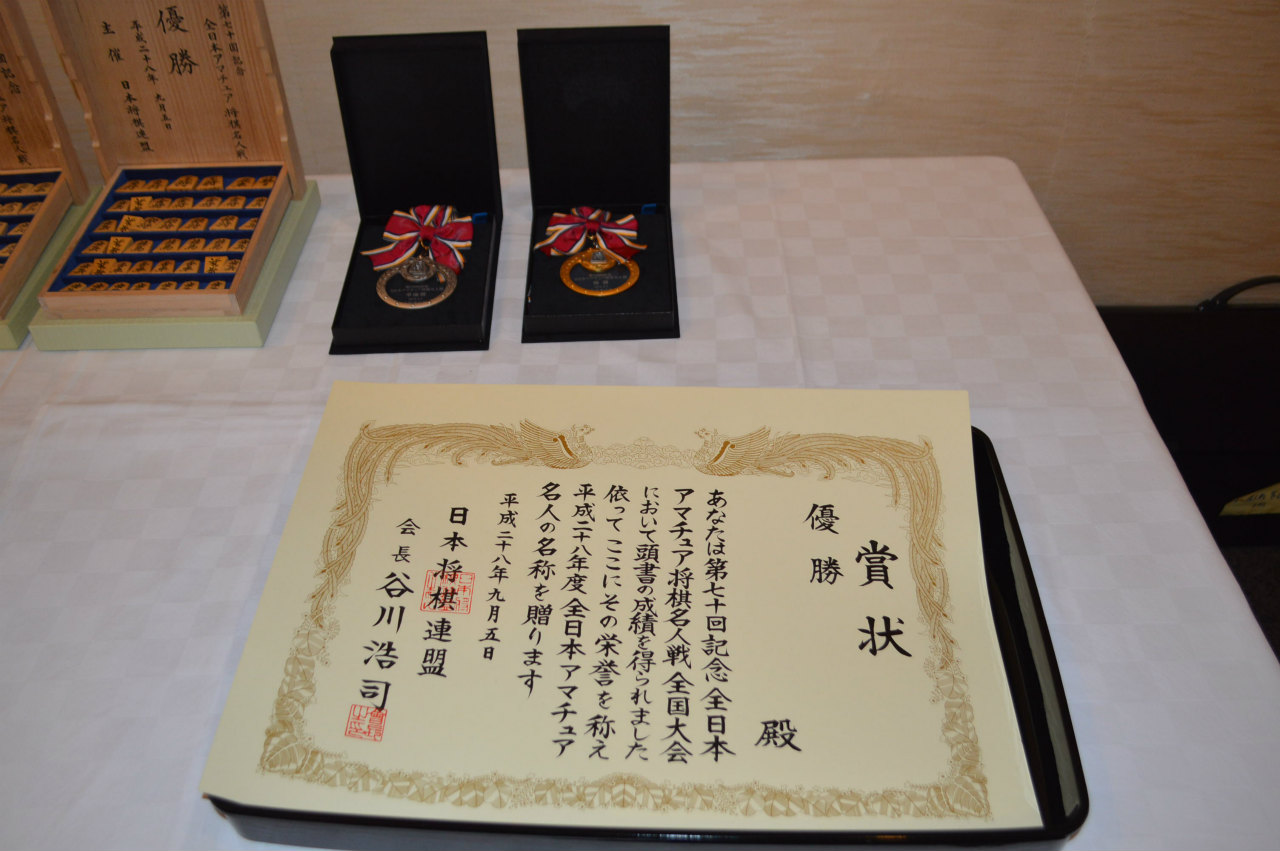 賞状
優勝
殿
あなたは第七十回記念全日本
アマチュア将棋名人戦全国大会
において頭書の成績を得られました
依ってここにその栄誉を称え
平成二十八年度全日本アマチュア
名人の名称を贈ります
平成二十八年九月五日
日本将棋連盟
会長 谷川浩司
第七十回記念
全日本アマチュア将棋名人戦
優勝
平成二十八年 九月五日
主催 日本将棋連盟